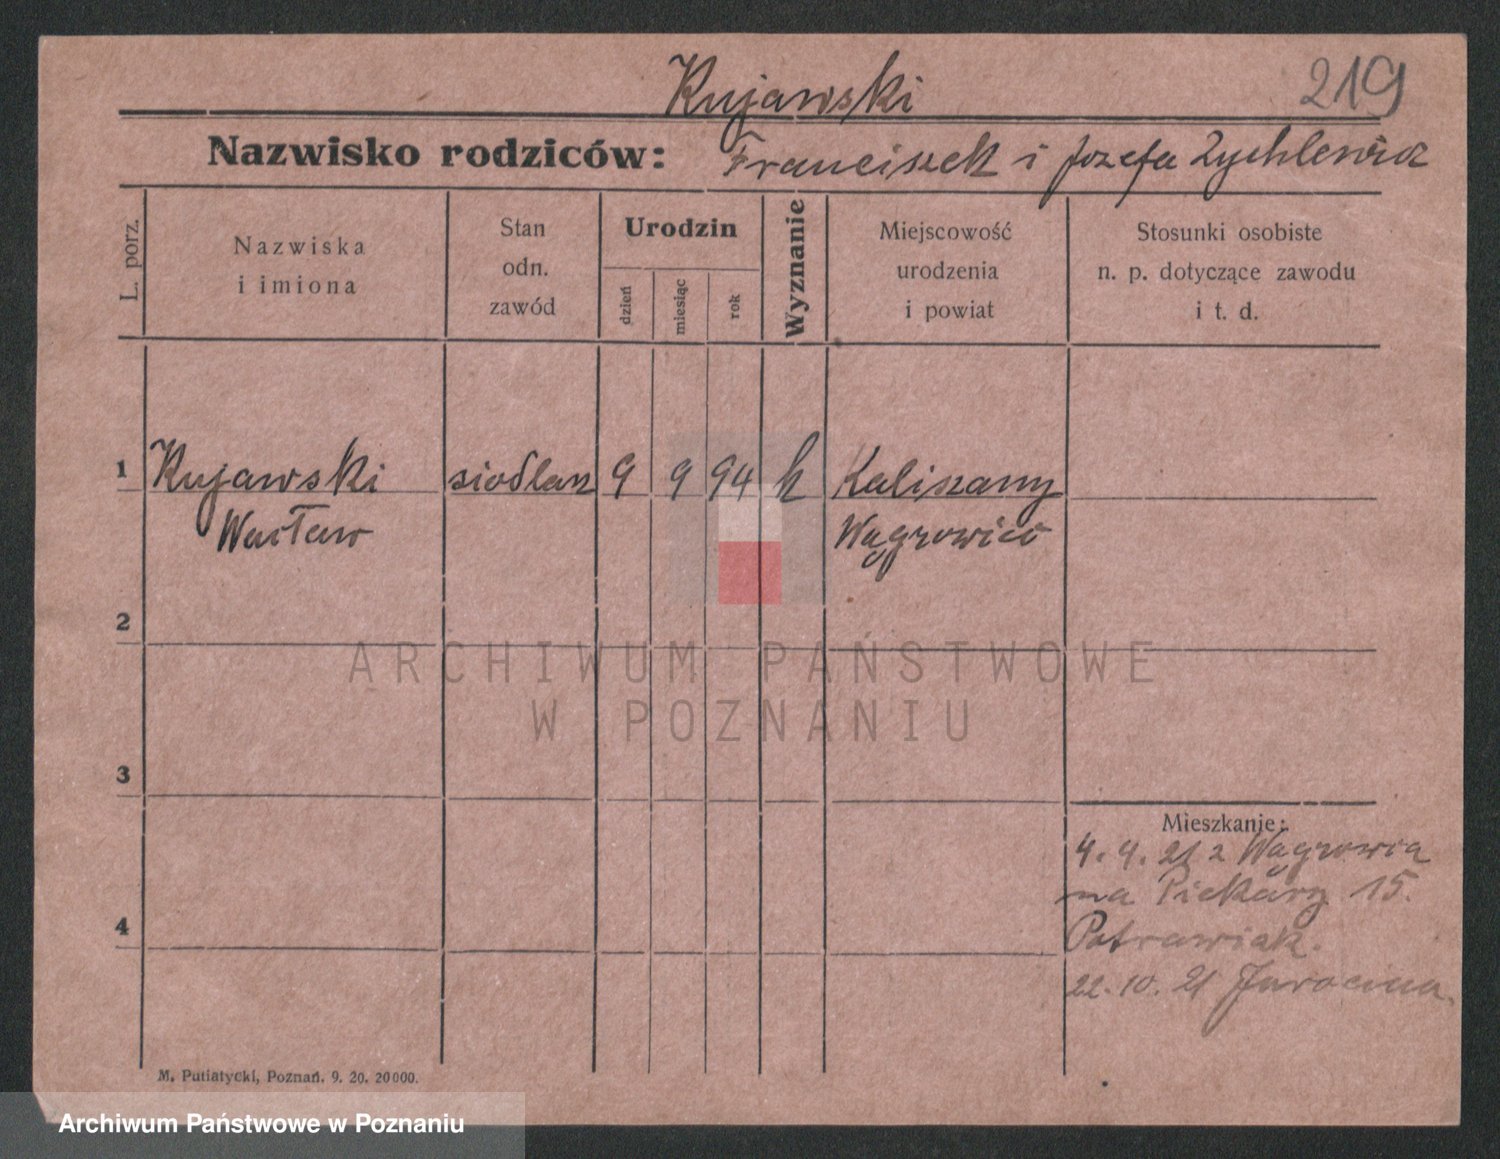 Kujawski 219
Nazwisko rodziców: Franciszek i Jozefa Rychlewicz
L. porz.
Nazwiska
i imiona
Stan
odn.
zawód
Urodzin
dzień
miesiąc
rok
Wyznanie
Miejscowość
urodzenia
i powiat
Stosunki osobiste
n. p. dotyczące zawodu
i t. d.
1 Kujawski siodlarz 9 9 94 k Kaliszany
Wacław Wągrowiec
2
ARCHIWUM PAŃSTWOWE
W POZNANIU
3
Mieszkanie:
4. 4. 21 z Wągrowca
na Piekary 15.
4
Patrawiak.
22. 10. 21 Jarocina.
M. Putiatycki, Poznań. 9. 20. 20000.
Archiwum Państwowe w Poznaniu